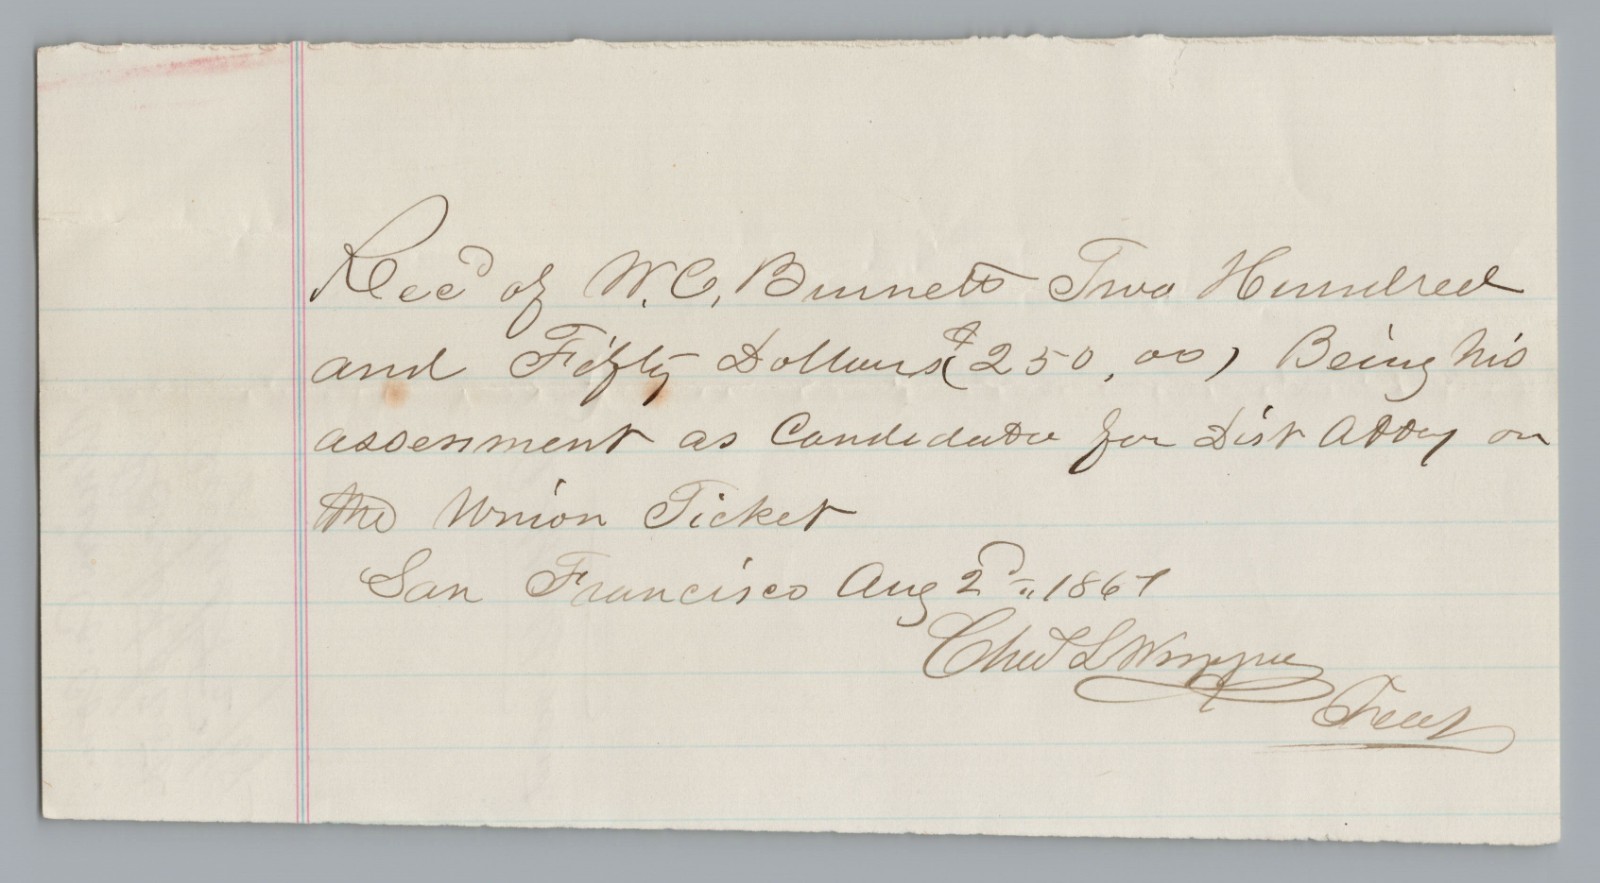 Rec'd of W. C. Burnett Two Hundred
and Fifty Dollars ($250,00) Being his
assessment as Candidate for Dist Atty on
the Union Ticket
San Francisco Aug 2d 1867
Chas L
Treas